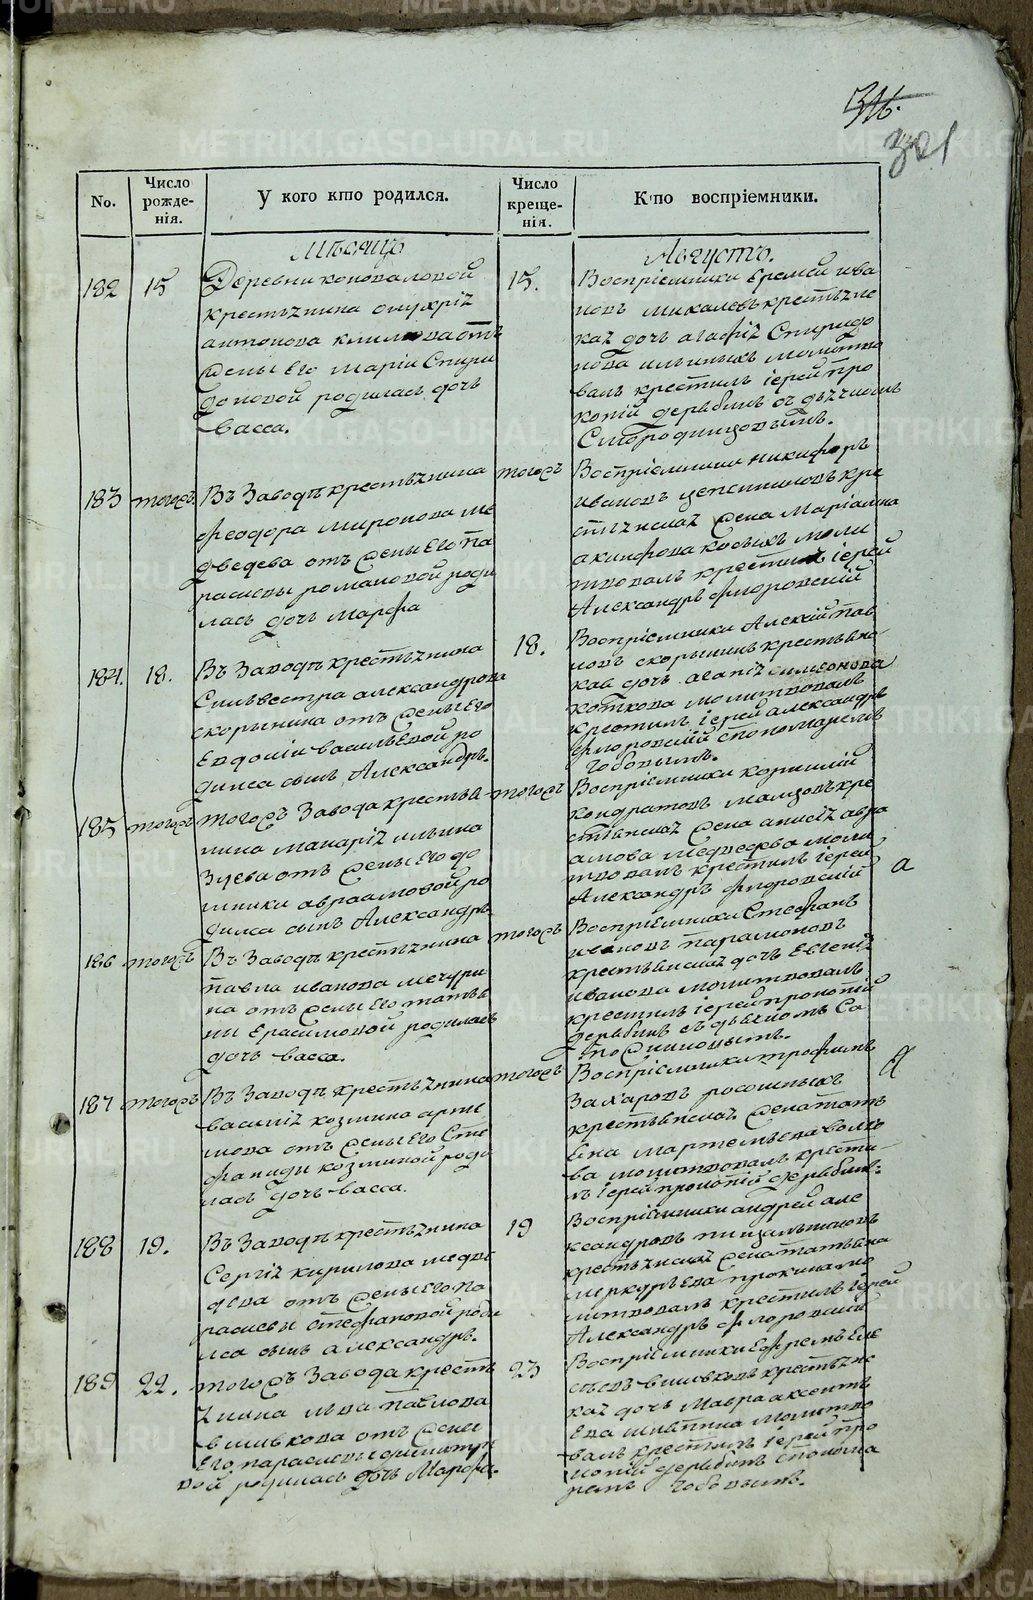 316.
321
No.
Число рожде-нія.
У кого кто родился.
Число креще-нія.
Кто воспріемники.
Мѣсяцъ
Августъ.
182 15
Деревни коноваловой
крестьянина
антонова отъ
жены его маріи Спири
доновой родилась дочь
васса.
15.
Воспріемники Еремей ива
новъ крестьянс
кая дочь агафія Спиридо
нова молитво
валъ крестилъ іерей про
копій дерябинъ съ дьячкомъ
Смородинцовымъ.
183 тогожъ
Въ Заводѣ крестьянина
феодора миронова ме
дведева отъ жены его па
раскевы романовой роди
лась дочь марфа
тогожъ
Воспріемники никифоръ
ивановъ кре
стьянская жена Маріамна
акинфова косыхъ моли
твовалъ крестилъ іерей
Александръ флоровскій
184. 18.
Въ Заводѣ крестьянина
Сильвестра александрова
скорынина отъ жены его
Евдокіи васильевой ро
дился сынъ Александръ.
18.
Воспріемники Алексій пав
ловъ скорынинъ крестьянс
кая дочь агапія симеонова
коткова молитвовалъ
крестилъ іерей александръ
флоровскій с пономаремъ
185 тогожъ
тогожъ Завода крестья
нина макарія ильина
Зуева отъ жены его до
мники авраамовой ро
дился сынъ Александръ.
тогожъ
Воспріемники корнилій
кондратовъ кре
стьянская жена анисія авра
амова медведева моли
твовалъ крестилъ іерей
Александръ флоровскій
а
186 тогожъ
Въ Заводѣ крестьянина
павла иванова мичури
на отъ жены его татья
ны Ерасимовой родилась
дочь васса.
тогожъ
Воспріемники Стефанъ
ивановъ парамоновъ
крестьянская дочь Евгенія
иванова молитвовалъ
крестилъ іерей прокопій
дерябинъ съ дьячкомъ Са
пожниковымъ.
187 тогожъ
Въ Заводѣ крестьянина
василія козмина арте
мова отъ жены его Сте
фаниды козминой роди
лась дочь васса.
тогожъ
Воспріемники трофимъ
Захаровъ росошныхъ
крестьянская жена татья
мартемьянова
молитвовалъ крести
лъ іерей прокопій дерябинъ.
188 19.
Въ Заводѣ крестьянина
Сергія кирилова медве
дева отъ жены его па
раскевы стефановой роди
лся сынъ александръ.
19
Воспріемники андрей але
ксандровъ
крестьянская жена татьяна
меркурьева мо
литвовалъ крестилъ іерей
Александръ флоровскій
189 22.
тогожъ Завода кресть
янина льва павлова
вшивкова отъ жены
его параскевы
вой родилась дочь Марфа.
23
Воспріемники Ефремъ Ели
сѣевъ вшивковъ крестьянс
кая дочь Мавра аксенть
ева молитво
валъ крестилъ іерей про
копій дерябинъ с понома
ремъ
METRIKI.GASO-URAL.RU